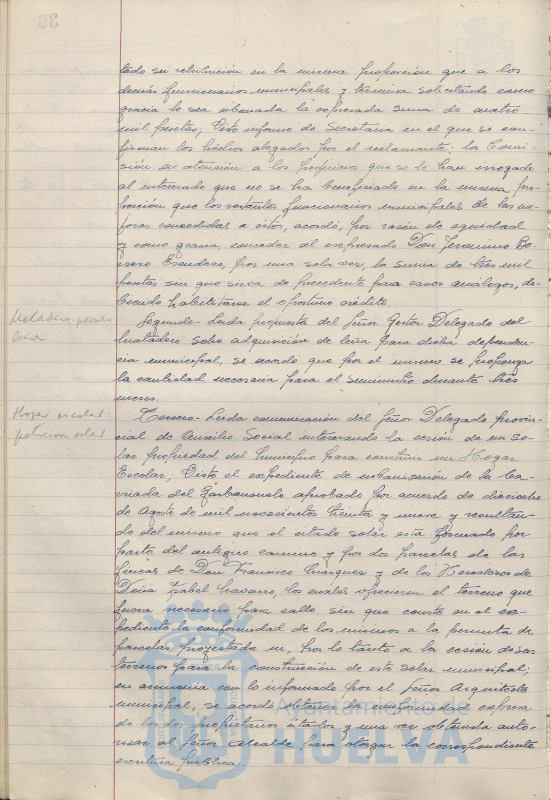 tado su retribución en la misma proporción que a los
demás funcionarios municipales y termina solicitando como
gracia le sea abonada la expresada suma de cuatro
mil pesetas; Visto informe de Secretaría en el que se con-
firman los hechos alegados por el reclamante; la Comi-
sión en atención a los perjuicios que se le han irrogado
al interesado que no se ha beneficiado en la misma pro-
porción que los restantes funcionarios municipales de las me-
joras concedidas a estos, acordó, por razón de equidad
y como gracia, conceder al expresado Don Jeronimo Bo-
rrero Escudero, por una sola vez, la suma de tres mil
pesetas sin que sirva de precedente para casos análogos, de-
biendo habilitarse el oportuno crédito.
Matadero
Segundo.- Leida propuesta del Señor Gestor Delegado del
Matadero sobre adquisición de leña para dicha dependen-
cia municipal, se acordó que por el mismo se proponga
la cantidad necesaria para el suministro durante tres
meses.
Hogar escolar-
peticion solar
Tercero.- Leida comunicación del Señor Delegado provin-
cial de Auxilio Social interesando la cesión de un so-
lar propiedad del Municipio para construir un Hogar
Escolar; Visto el expediente de urbanización de la ba-
rriada del aprobado por acuerdo de dieciocho
de Agosto de mil novecientos treinta y nueve y resultan-
do del mismo que el citado solar está formado por
parte del antiguo camino y por dos parcelas de las
fincas de Don Francisco Marquez y de los Herederos de
Doña Isabel Navarro, los cuales ofrecieron el terreno que
fuera necesario para calle sin que conste en el ex-
pediente la conformidad de los mismos a la permuta de
parcelas proyectada ni, por lo tanto a la cesión de sus
terrenos para la construcción de este solar municipal;
en armonia con lo informado por el Señor Arquitecto
municipal, se acordó obtener la conformidad expresa
de los dos propietarios citados y una vez obtenida auto-
rizar al Señor Alcalde para otorgar la correspondiente
escritura pública.
Ayuntamiento de
HUELVA
36